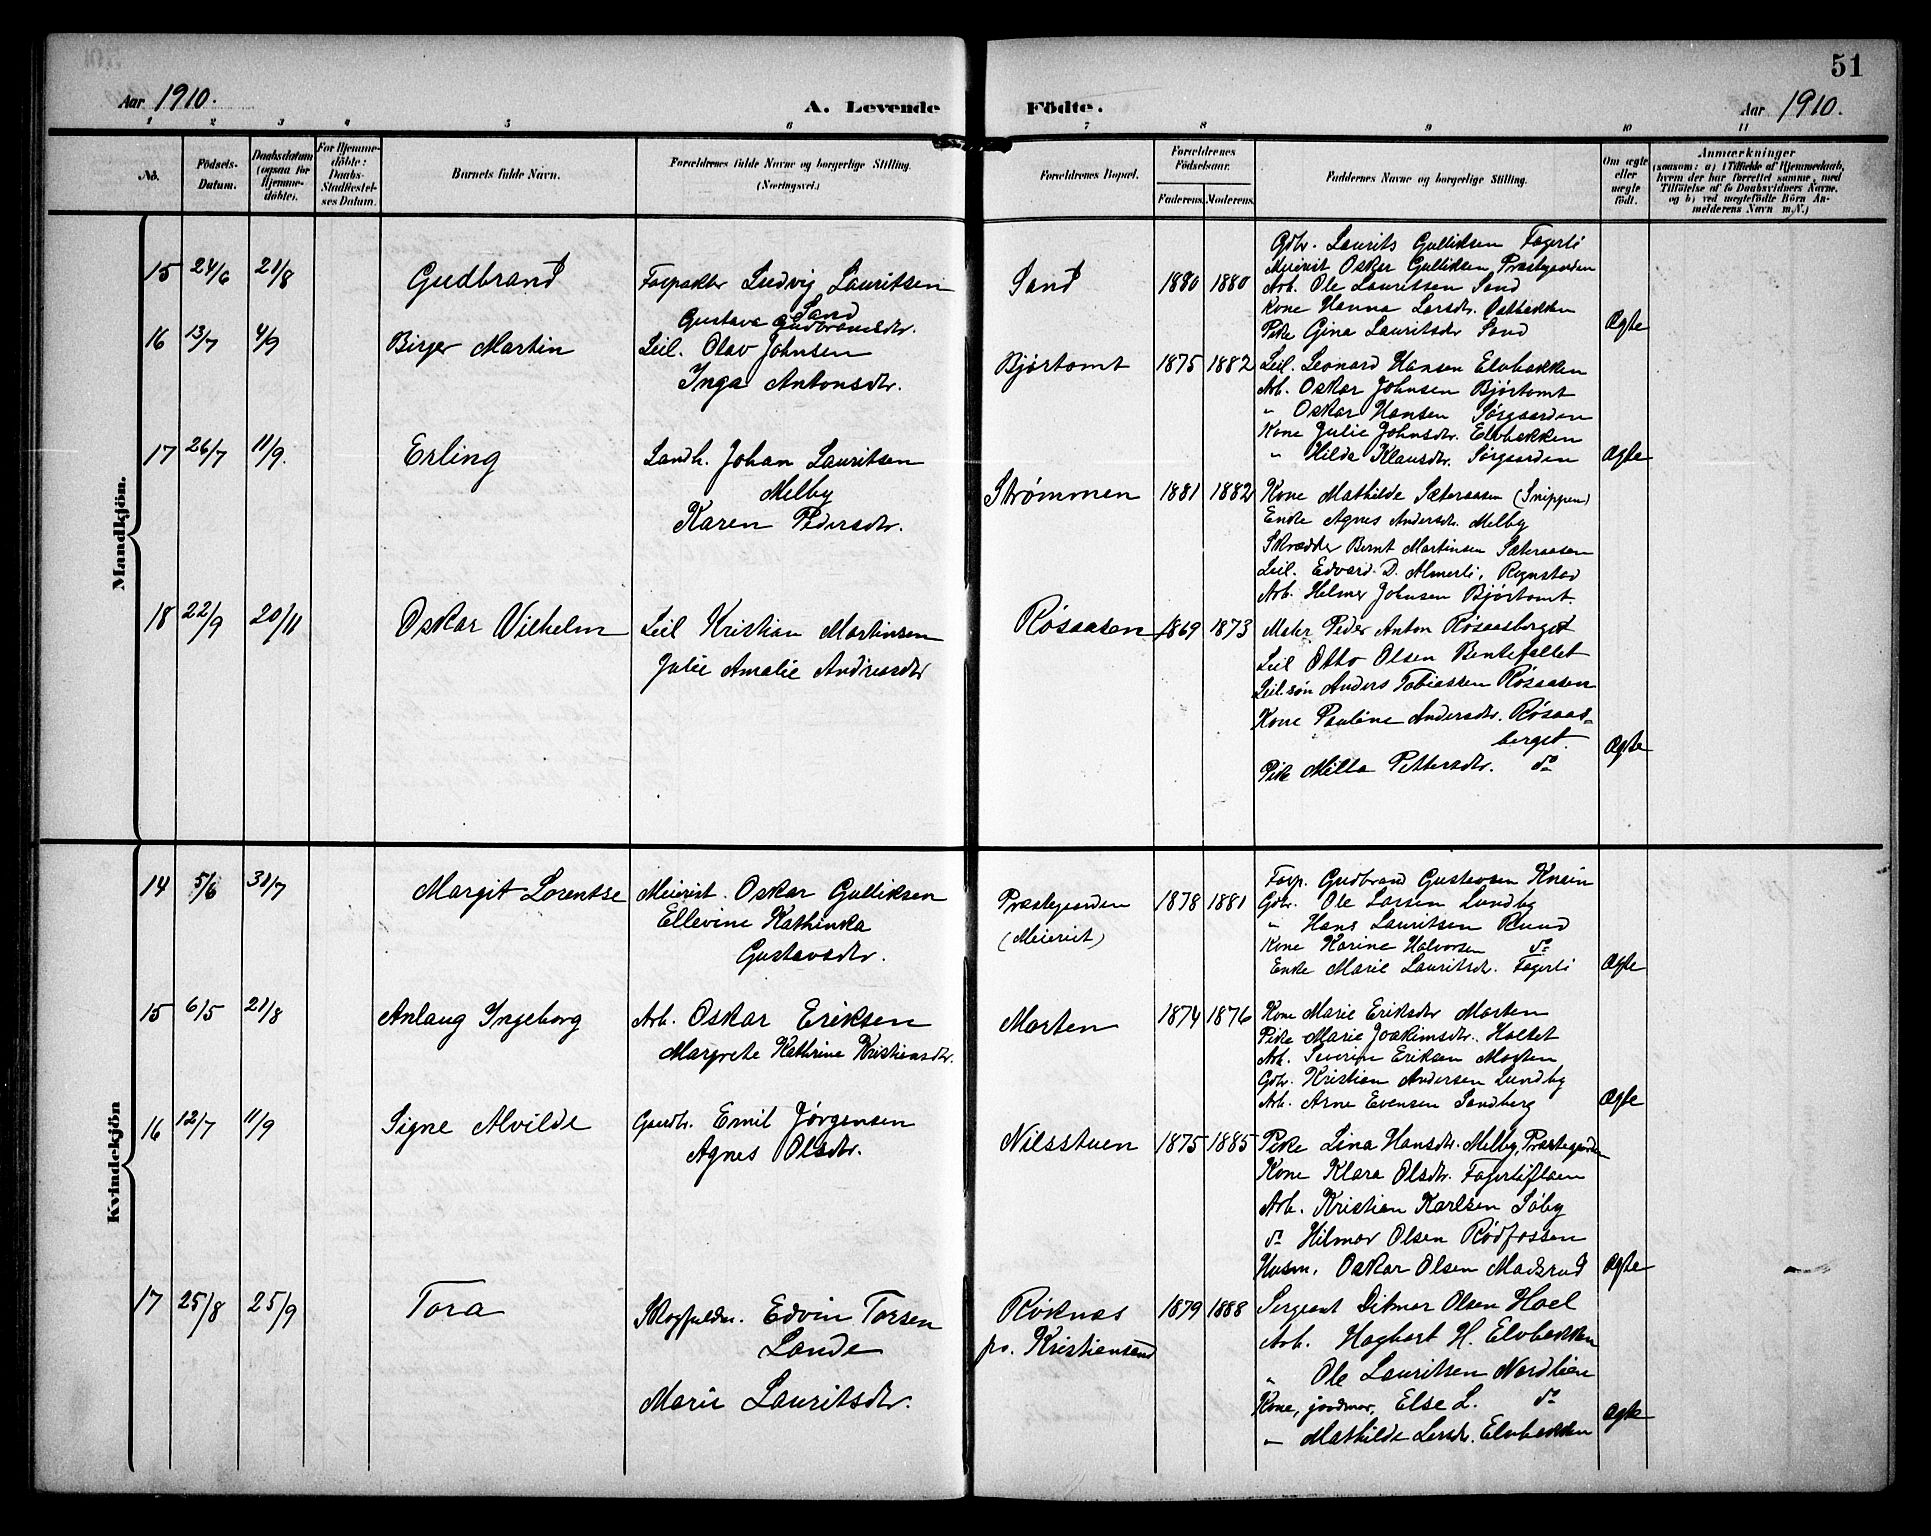 51
Aar 1910.
A. Levende Födte.
Aar 1910.
1 2 3 4 5 6 7 8 9 10 11
No.
Födsels-
Datum.
Daabsdatum
(ogsaa for
Hjemme-
döbte).
For Hjemme-
döbte:
Daabs-
Stadfæstel-
ses Datum.
Barnets fulde Navn.
Forældrenes fulde Navne og borgerlige Stilling.
(Næringsvei.)
Forældrenes Bopæl.
Forældrenes
Födselsaar.
Faderens. Moderens.
Faddernes Navne og borgerlige Stilling.
Om ægte
eller
uægte
født.
Anmærkninger
(saasom: a) i Tilfælde af Hjemmedaab,
hvem der har forrettet samme, med
Tilföielse af to Daabsvidners Navne,
og b) ved uægtefödte Börn An-
melderens Navn m.V.)
Mandkjön.
15 24/6 21/8 Gudbrand
Forpakter Ludvig Lauritsen
Sand
Gustava Gudbrandsdtr.
Sand 1880 1880
Gdbr. Laurits Gulliksen Fagerli
Meierist Oskar Gulliksen Præstegaarden
Arb. Ole Lauritsen Sand
Kone Hanna Larsdtr. Dalbakken
Pike Gina Lauritsdtr Sand
Ægte
16 13/7 4/9 Birger Martin
Leil. Olav Johnsen
Inga Antonsdtr.
Bjørtomt 1875 1882
Leil. Leonard Hansen Elvbakken
Arb. Oskar Johnsen Bjørtomt
" Oskar Hansen Sørgaarden
Kone Julie Johnsdtr. Elvbakken
" Hilda Klausdtr. Sørgaarden
Ægte
17 26/7 11/9. Erling
Landh. Johan Lauritsen
Melby
Karen Pedersdtr.
Strømmen 1881 1882
Kone Mathilde Sæteraasen (Snippen)
Enke Agnes Andersdtr. Melby
Skrædder Bernt Martinsen Sæteraasen
Leil. Edvard D. Almerli, Rognstad
Arb. Helmer Johnsen Bjørtomt.
18 22/9 20/11 Oskar Vilhelm
Leil Kristian Martinsen
Julie Amalie Andreasdtr
Røsaasen 1869 1873
Peder Anton Røsaasberget
Leil Otto Olsen Bentefallet
Leil.søn Anders Tobiassen Røsaasen
Kone Pauline Andersdtr. Røsaas-
berget.
Pike Milla Pettersdtr. do
Ægte
Kvindekjön
14 5/6 31/7 Margit Lorentse
Meierist. Oskar Gulliksen
Ellevine Kathinka
Gustavsdtr.
Præstegaarden
(Meieriet)
1878 1881
Forp. Gudbrand Gustavsen Knein
Gdbr. Ole Larsen Lundby
" Hans Lauritsen Ruud
Kone Karine Halvorsen do
Enke Marie Lauritsdtr. Fagerli
Ægte
15 6/5 21/8 Anlaug Ingeborg
Arb. Oskar Eriksen
Margrete Kathrine Kristiansdtr.
Morten 1874 1876
Kone Marie Eriksdtr Morten
Pike Marie Joakimsdtr. Holtet
Arb. Severin Eriksen Morten
Gdbr. Kristian Andersen Lundby
Arb. Arne Evensen Sandberg
Ægte
16 12/7 11/9 Signe Alvilde
Gaardbr. Emil Jørgensen
Agnes Olsdtr.
Nilsstuen 1875 1885
Pike Lina Hansdtr. Melby, Præstegaarden
Kone Klara Olsdtr. Fagerliflaen
Arb. Kristian Karlsen Søby
do Hilmar Olsen Rødfossen
Husm. Oskar Olsen Madsrud
Ægte
17 25/8 25/9 Tora
Skogfuldm. Edvin Torsen
Lande
Marie Lauritsdtr.
Røknes
pr. Kristiansand
1879 1888
Sergeant Ditmar Olsen Hoel
Arb. Hagbart H. Elvbakken
" Ole Lauritsen Nordlien
Kone, jordmor, Else L. do
" Mathilde Larsdtr. Elvbakken
Ægte